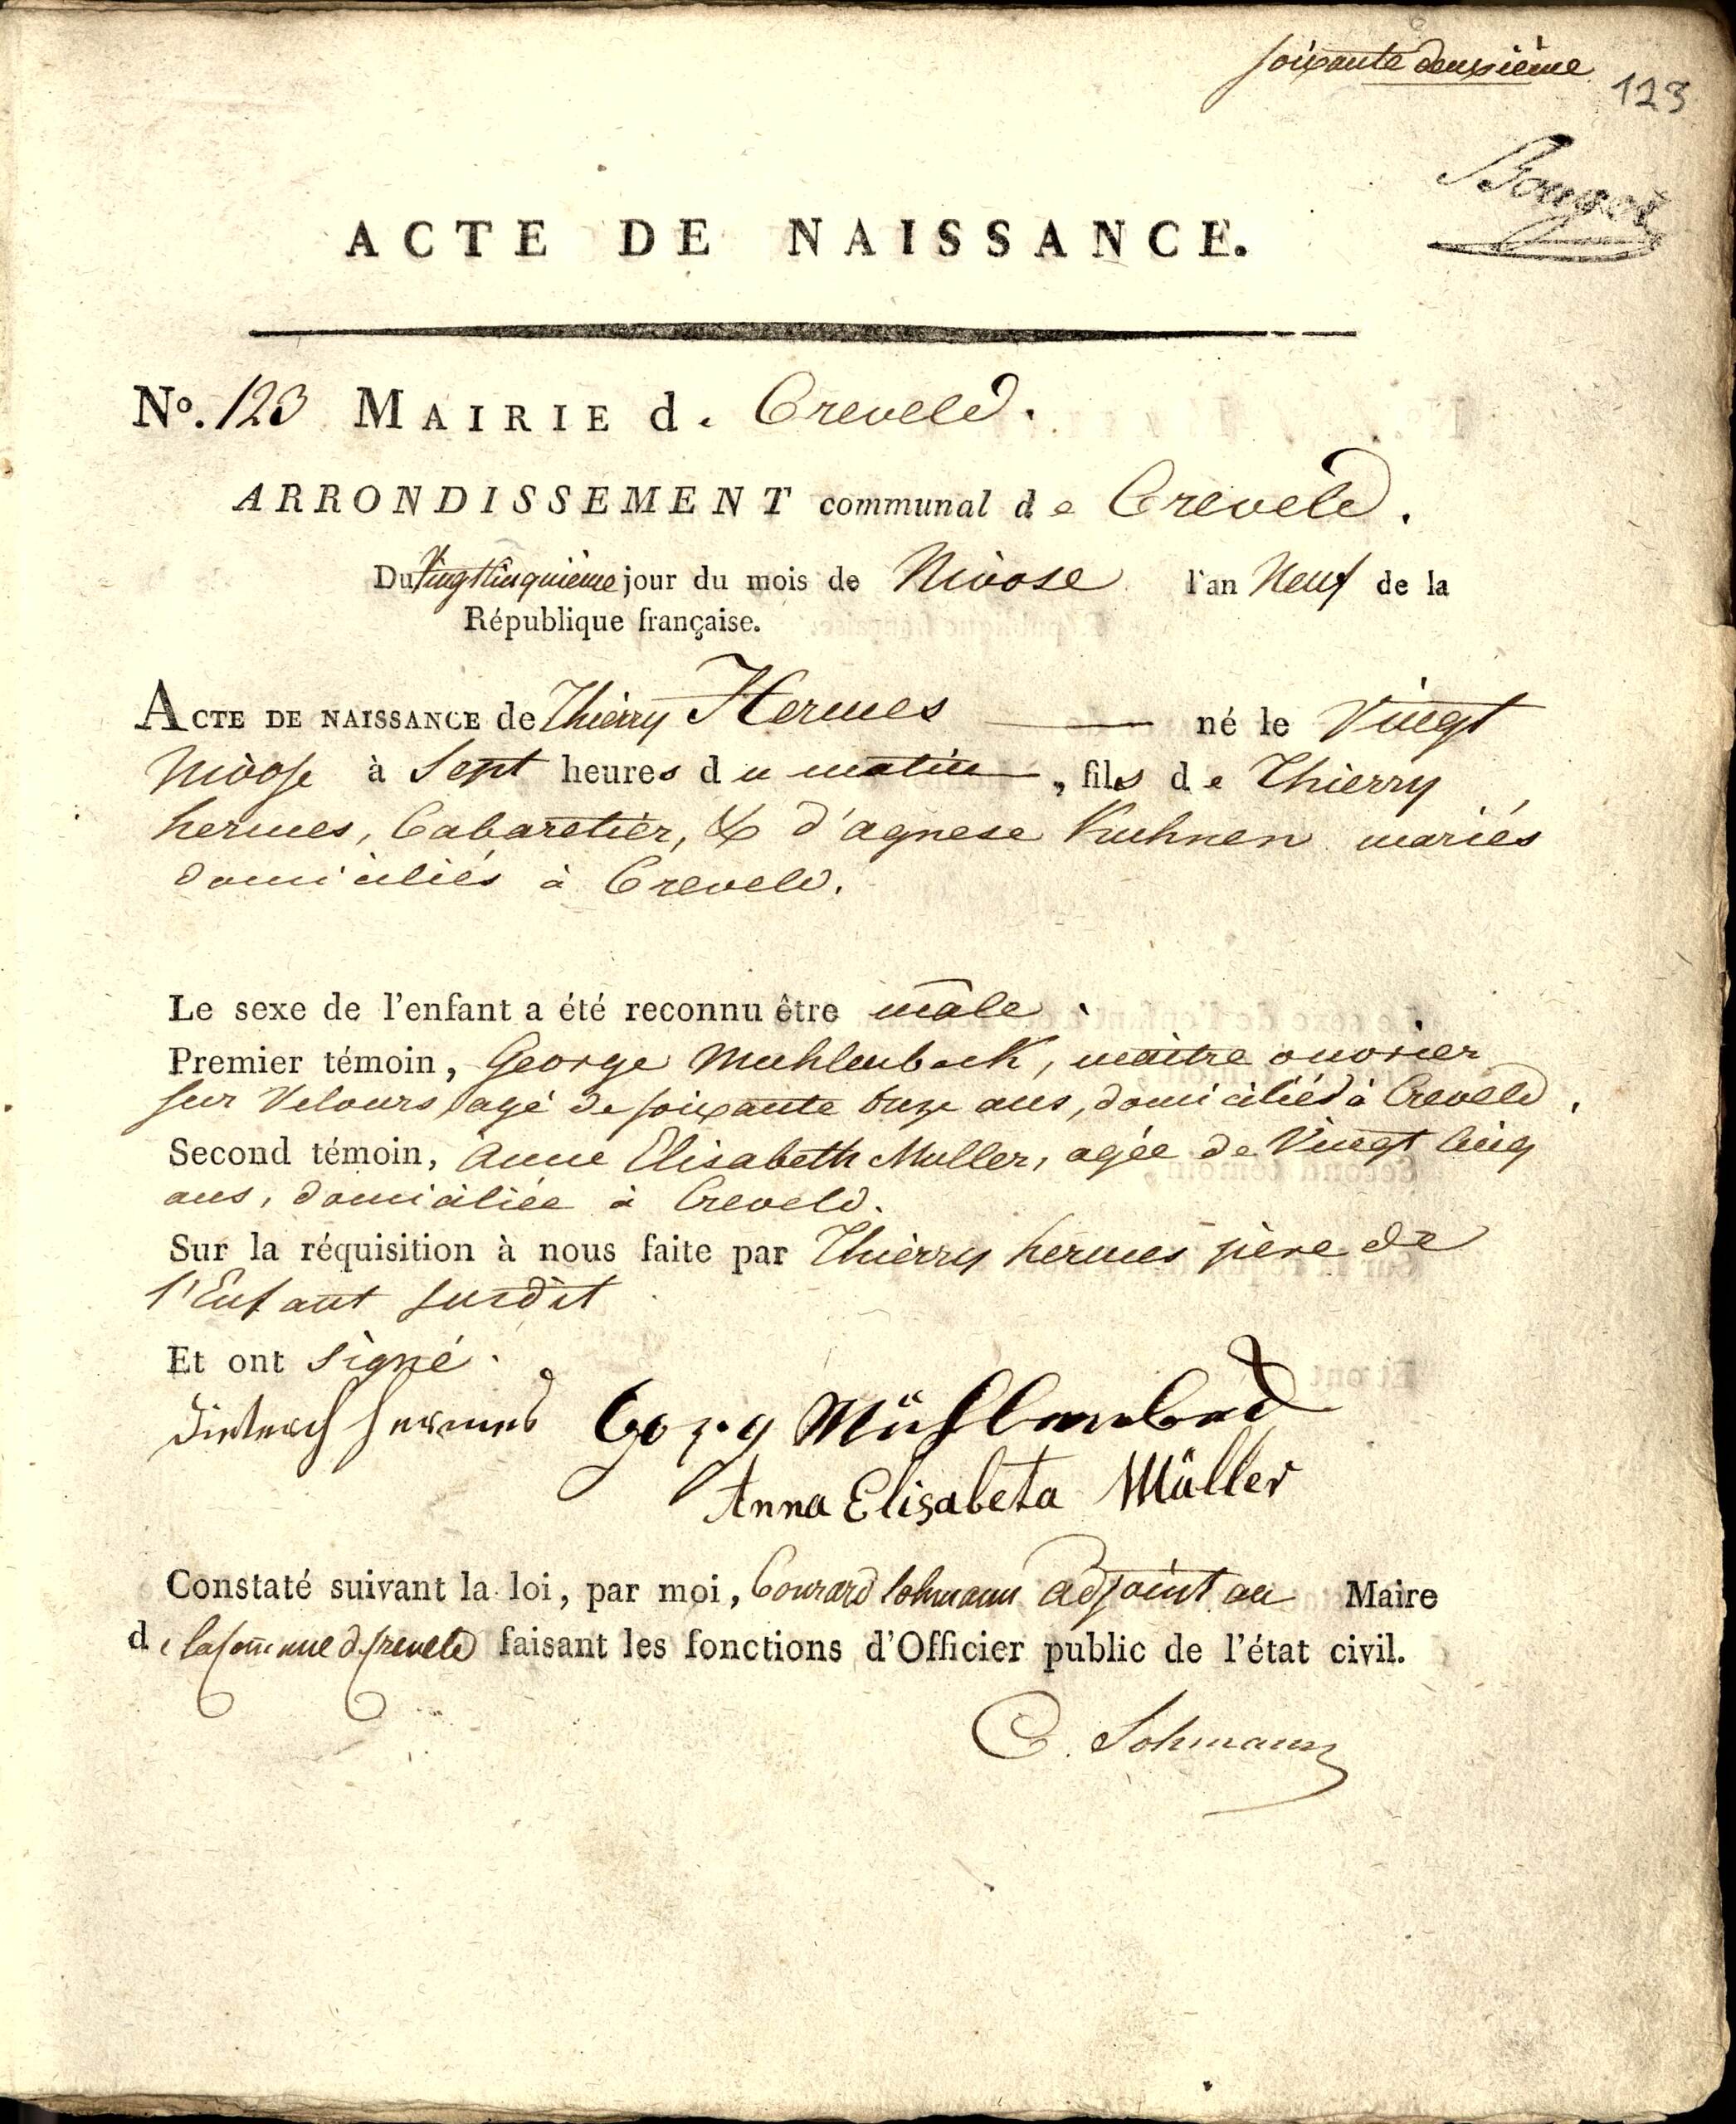 soixante deuxième
123
Bouget
ACTE DE NAISSANCE.
No. 123 MAIRIE d. Creveld.
ARRONDISSEMENT communal de Creveld.
Du Vingtcinquième jour du mois de Nivose l'an Neuf de la
République française.
ACTE DE NAISSANCE de Thierry Hermes né le Vingt
Nivose à Sept heures du matin, fils de Thierry
hermes, Cabaretier, & d'agnese Kuhnen mariés
domiciliés à Creveld.
Le sexe de l'enfant a été reconnu être mâle.
Premier témoin, George Muhlenback, maitre ouvrier
sur Velours, agé de soixante Onze ans, domicilié à Creveld.
Second témoin, Anne Elisabeth Muller, agée de Vingt Cinq
ans, domiciliée à Creveld.
Sur la réquisition à nous faite par Thierry hermes père de
l'Enfant susdit
Et ont signé.
Dieterich hermes Georg Mühlenbach
Anna Elisabeta Müller
Constaté suivant la loi, par moi, Conrard Sohmann adjoint au Maire
de la Commune de Creveld faisant les fonctions d'Officier public de l'état civil.
C. Sohmann